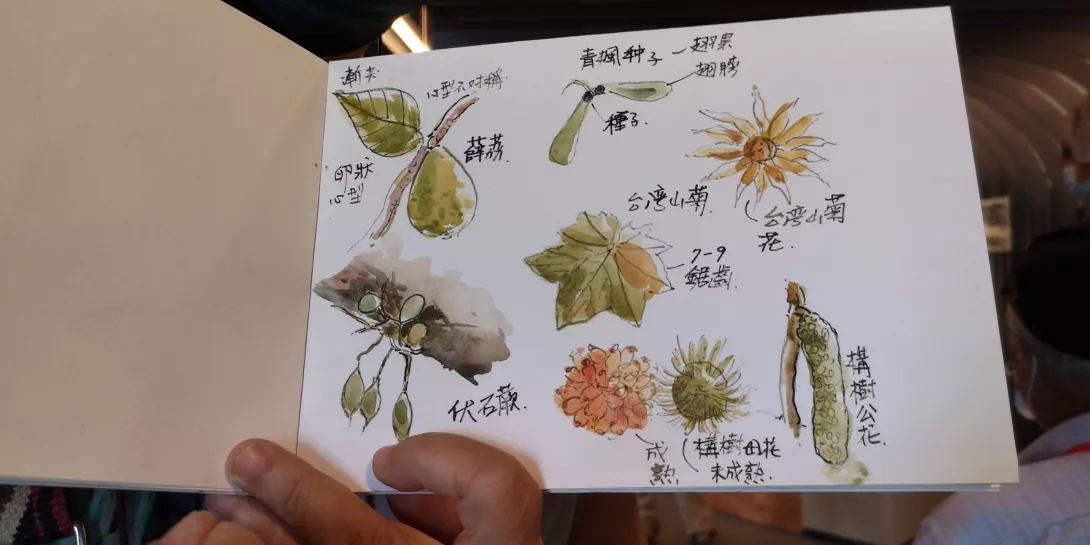 漸尖
心型不对稱
薜荔.
卵狀
心型
伏石蕨.
青楓种子
翅果
翅膀
種子.
台湾山菊.
台湾山菊
花.
7-9
鋸齒.
成
熟
構樹母花
未成熟.
構樹公花.